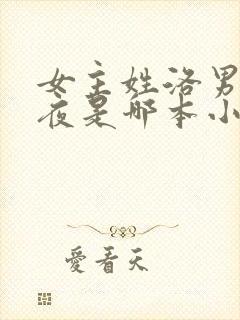 女主姓洛男
夜是哪本小
爱看天